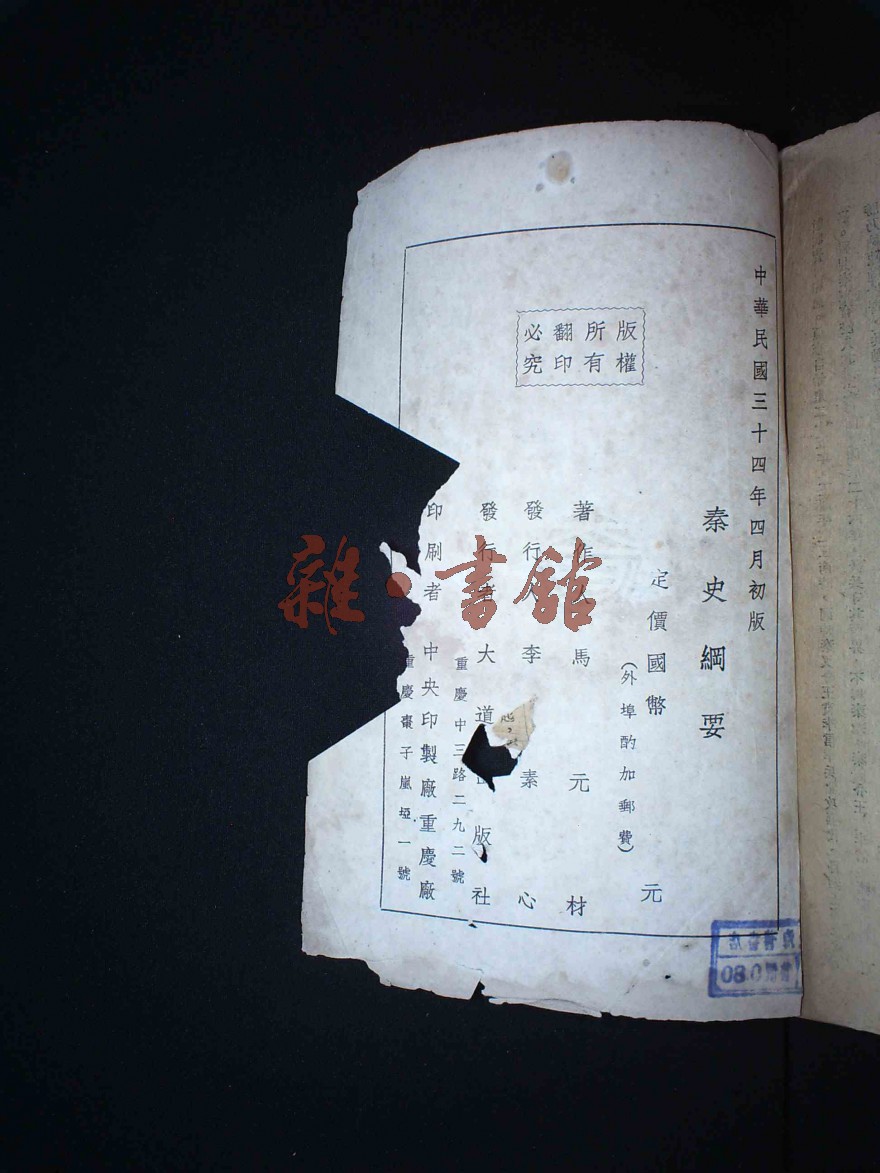 中華民國三十四年四月初版
秦史綱要
定價國幣 元
(外埠酌加郵費)
著作人 馬元材
發行人 李素心
發行者 大道出版社
重慶中三路二九二號
印刷者 中央印製廠重慶廠
重慶棗子嵐埡一號
版權
所有
翻印
必究
雜·書館
08.0